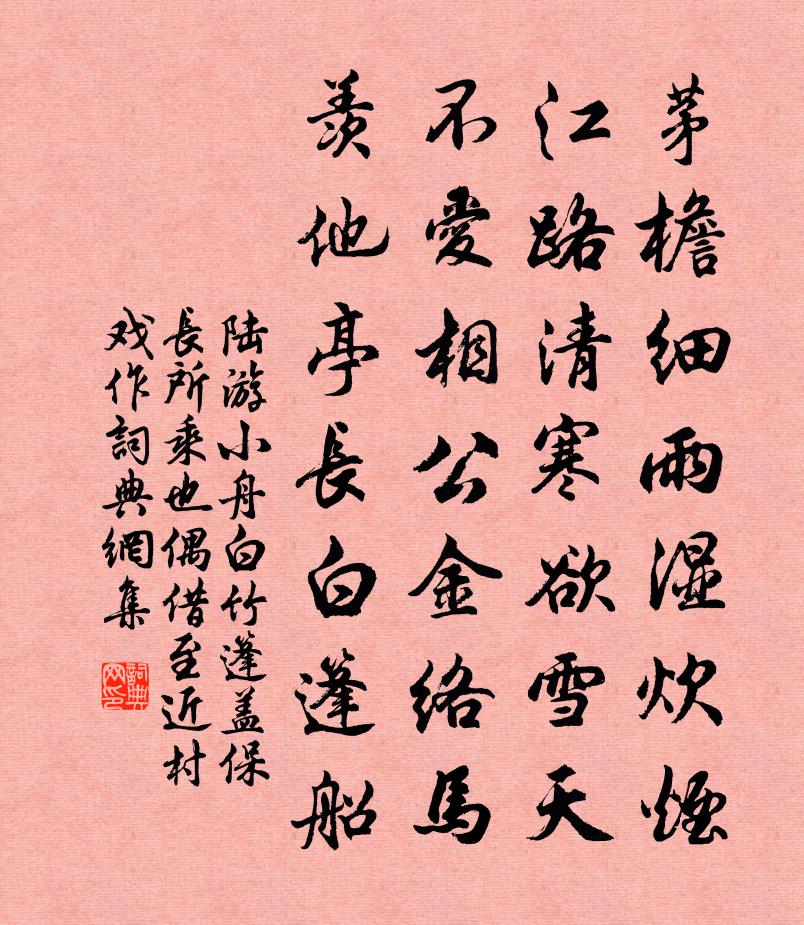 茅檐细雨湿炊煙
江路清寒欲雪天
不愛相公金络馬
羨他亭長白蓬船
陆游小舟白竹蓬盖保
長所乘也偶借至近村
戏作詞典網集
詞典
网印